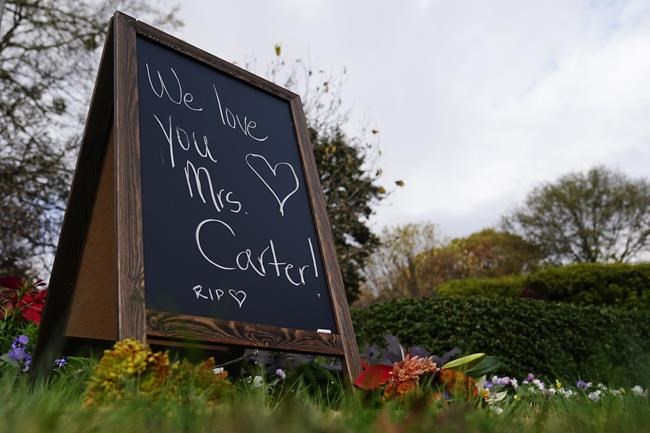 We love
you
Mrs.
Carter!
RIP